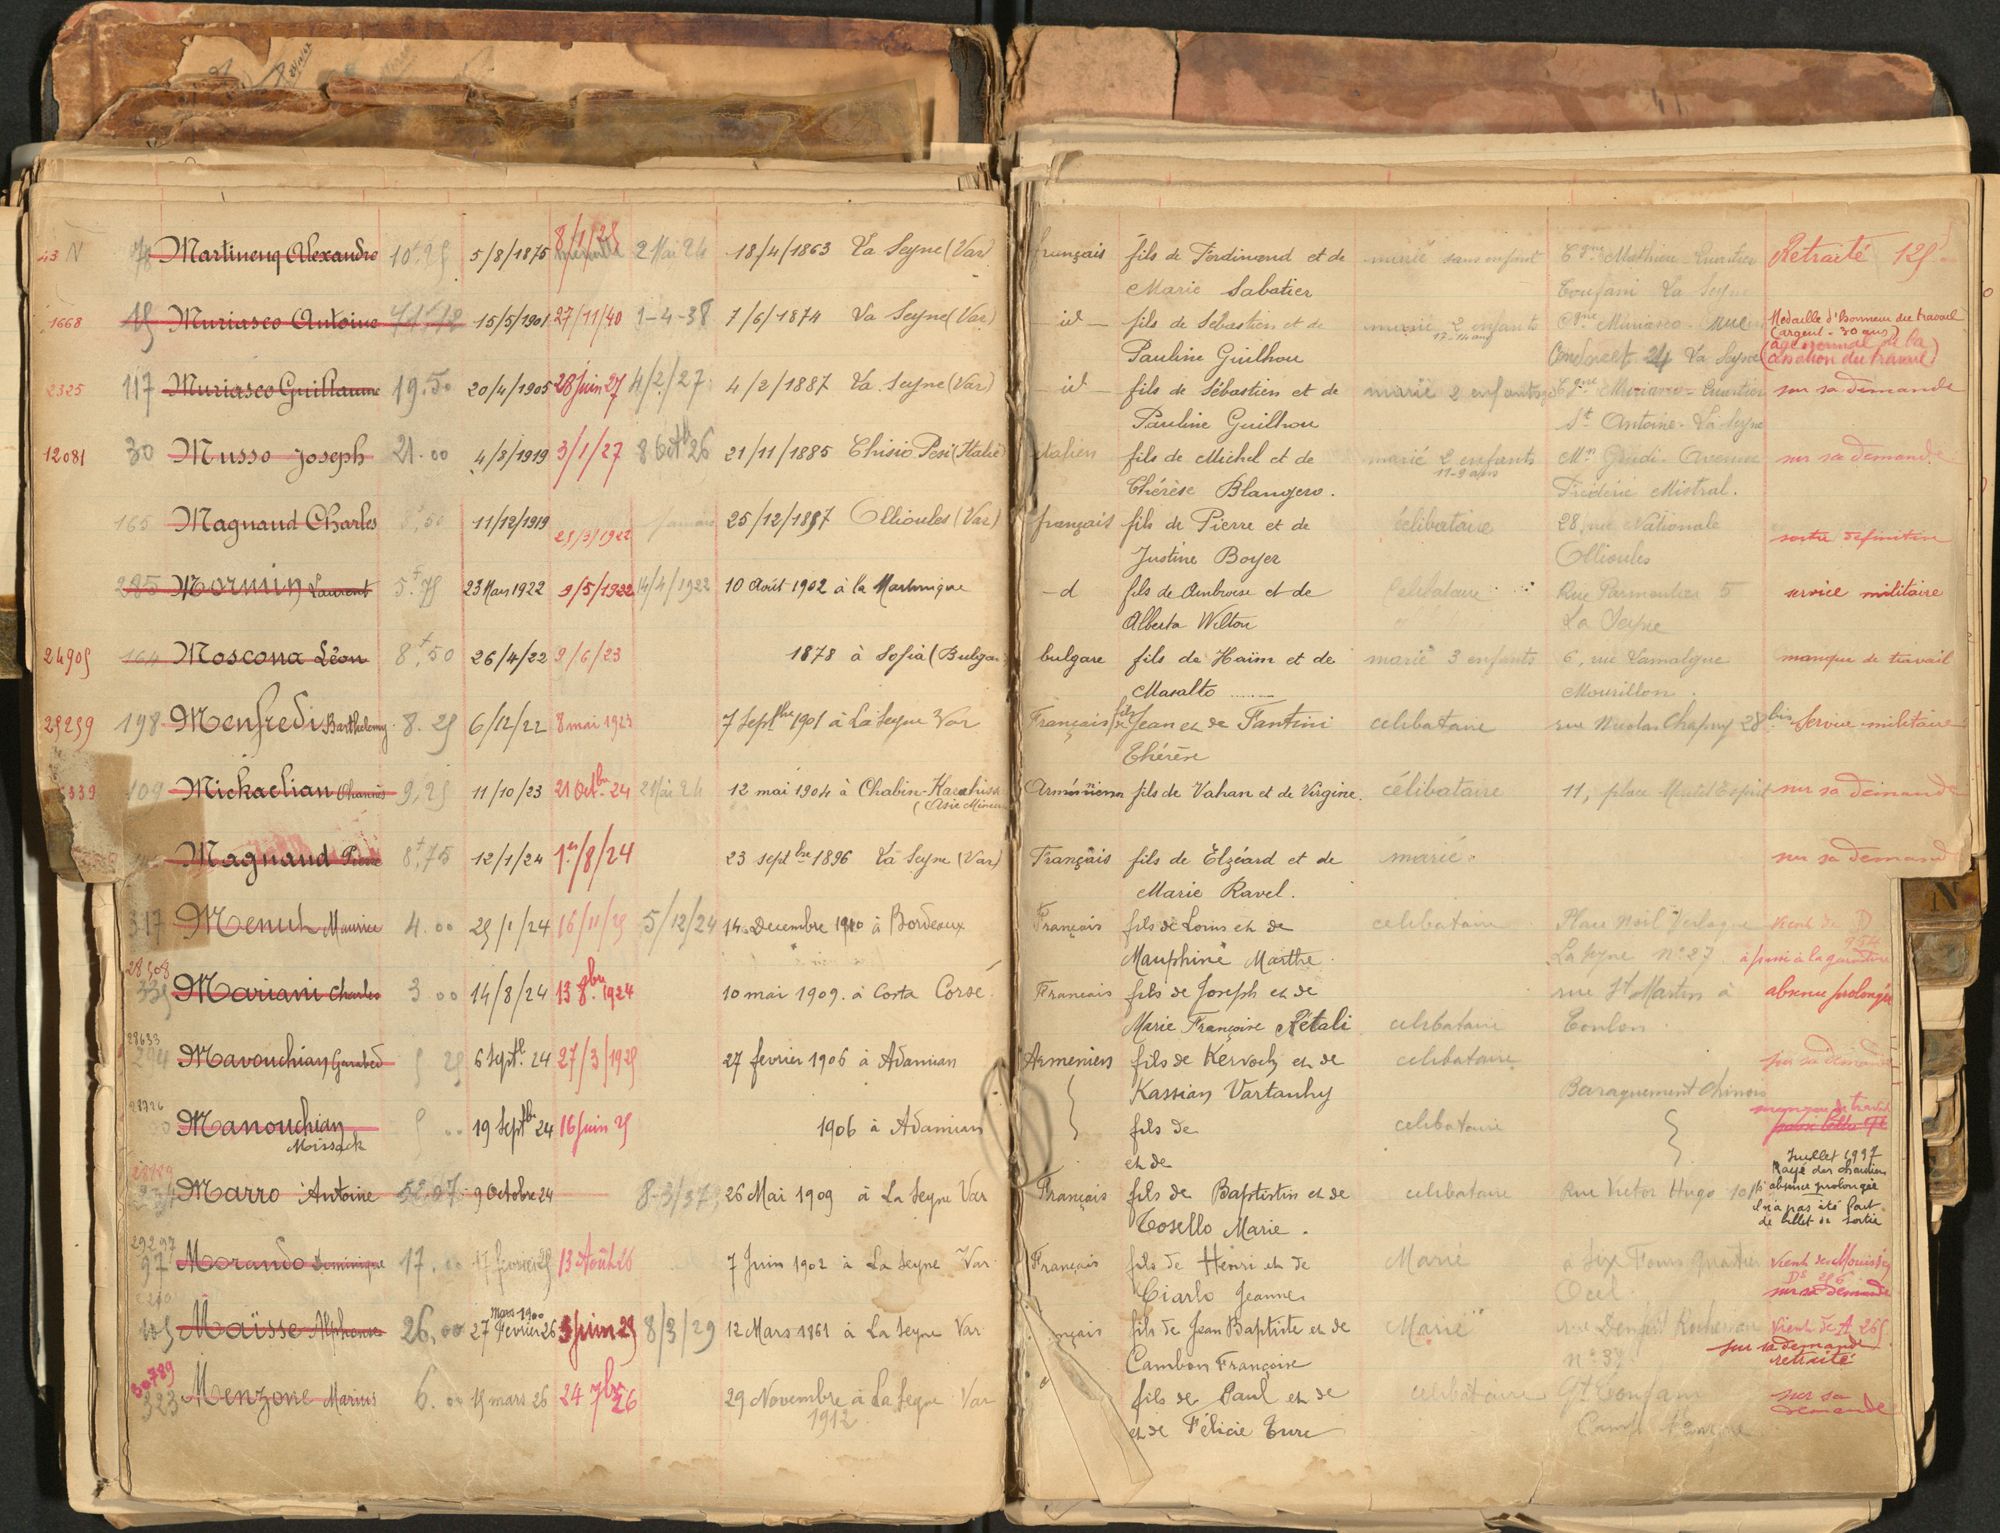 43 N 78 Martinenq Alexandre 5/8/1875 8/1/25 2 Mai 24 18/4/1863 La Seyne (Var) français fils de Ferdinand et de marié sans enfant Cgne Mathieu - Quartier Retraité 125
Marie Sabatier Touffani La Seyne
1668 15 Muriasco Antoine 15/5/1901 27/11/40 1-4-38 7/6/1874 La Seyne (Var) - id - fils de Sébastien et de marié 2 enfants Cgne Muriasco - rue Médaille d'honneur du travail
17-14 ans (argent - 30 ans)
Pauline Guilhou Condorcet 24 La Seyne age normal de la
cessation du travail
2325 117 Muriasco Guillaume 19.50 20/4/1905 28 juin 27 4/2/27 4/2/1887 La Seyne (Var) - id - fils de Sébastien et de marié 2 enfants Cgne Muriasco - Quartier sur sa demande
Pauline Guilhou St Antoine - La Seyne
12081 30 Musso Joseph 21.00 4/8/1919 3/1/27 8 Oct 26 21/11/1885 Chisio Pesi (Italie) italien fils de Michel et de marié 2 enfants Mn Giudi - Avenue sur sa demande
11-9 ans
Thérèse Blangero. Frédéric Mistral.
165 Magnaud Charles 8,50 11/12/1919 25/3/1922 25/12/1897 Ollioules (Var) français fils de Pierre et de célibataire 28, rue Nationale sortie définitive
Justine Boyer Ollioules
285 Mormin Laurent 5.75 23 Mars 1922 9/5/1922 14/4/1922 10 Août 1902 à la Martinique - d fils de Ambroise et de Célibataire Rue Parmentier 5 service militaire
Alberta Wilton La Seyne
24905 164 Moscona Léon 8,50 26/4/22 9/6/23 1878 à Sofia (Bulgar bulgare fils de Haïm et de marié 3 enfants 6, rue Lamalgue manque de travail
Masalto ........ Mourillon.
25259 198 Menfredi Barthelemy 8.25 6/12/22 8 mai 1923 7 Septbre 1901 à La Seyne Var Français fils de Jean et de Fantini celibataire rue Nicolas Chapuy 28 bis Service militaire
Thérèse
339 109 Mickaelian Ohannès 9,25 11/10/23 21 Octbre 24 2 Mai 24 12 mai 1904 à Chabin-Karahissa Arménien fils de Vahan et de Virgine. célibataire 11, place Martel Esprit sur sa demande
(Asie Mineure
Magnaud Pierre 8,75 12/1/24 1er/8/24 23 septbre 1896 La Seyne (Var) Français fils de Elzéard et de marié. sur sa demande
Marie Ravel.
317 Menut Maurice 4.00 25/1/24 16/11/25 5/12/24 14 Decembre 1910 à Bordeaux Français fils de Louis et de celibataire Place Noël Verlaque vient de D
954
Mauphiné Marthe. La Seyne n° 27
28508
335 Mariani Charles 3 00 14/8/24 13 8bre 1924 10 mai 1909 à Costa Corse. Francais fils de Joseph et de rue St Martin à absence prolongée
Marie Françoise Rétali celibataire Toulon.
28633
294 Mavouchian Garabed 5 25 6 Sept. 24 27/3/1925 27 fevrier 1906 à Adamian Armeniens fils de Kervock et de celibataire sur sa demande
Kassian Vartanhy Baraquement Chinois
28726
Manouchian 5 00 19 Septbre 24 16 juin 25 1906 à Adamian fils de celibataire manque de travail
Missack et de
Juillet 1937
28789
234 Marro Antoine 52.07 9 Octobre 24 8-3/37 26 Mai 1909 à La Seyne Var Français fils de Baptistin et de celibataire Rue Victor Hugo 101 Rayé des chantiers
pr absence prolongée
Tosello Marie. il n'a pas été fait
de billet de sortie
29297
97 Morando Dominique 17.00 17 fevrier 25 13 Août 26 7 Juin 1902 à La Seyne Var Français fils de Henri et de Marié à Six Fours quartier vient de Mouissèq
Ds 256
Ciarlo Jeanne. sur sa demande
mars 1900
105 Maïsse Alphonse 26,00 27 Fevrier 26 3 Juin 29 8/3/29 12 Mars 1861 à La Seyne Var nçais fils de Jean Baptiste et de Marié rue Denfert Rochereau Vient de A 265
Cambon Françoise n° 37 sur sa demande
retraité
30789
323 Menzone Marius 6.00 15 mars 26 24 7bre 26 29 Novembre à La Seyne Var fils de Paul et de celibataire Qt Touffani sur sa
1912 et de Félicie Ture demande